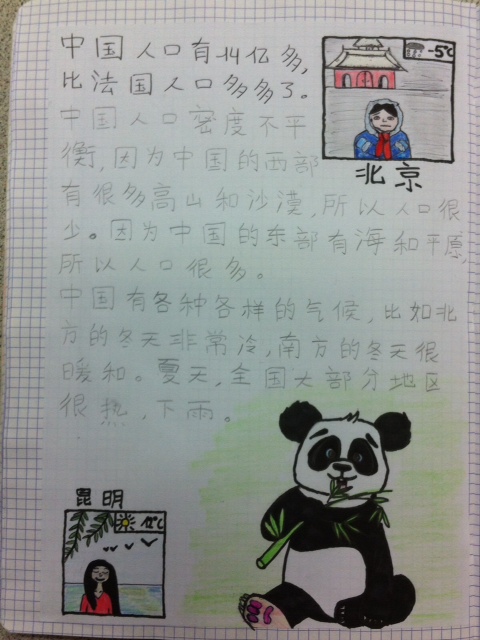 中国人口有14亿多,
比法国人口多多了。
中国人口密度不平
衡,因为中国的西部
有很多高山和沙漠,所以人口很
少。因为中国的东部有海和平原,
所以人口很多。
中国有各种各样的气候,比如北
方的冬天非常冷,南方的冬天很
暖和。夏天,全国大部分地区
很热,下雨。
-5°C
北京
昆明
12°C